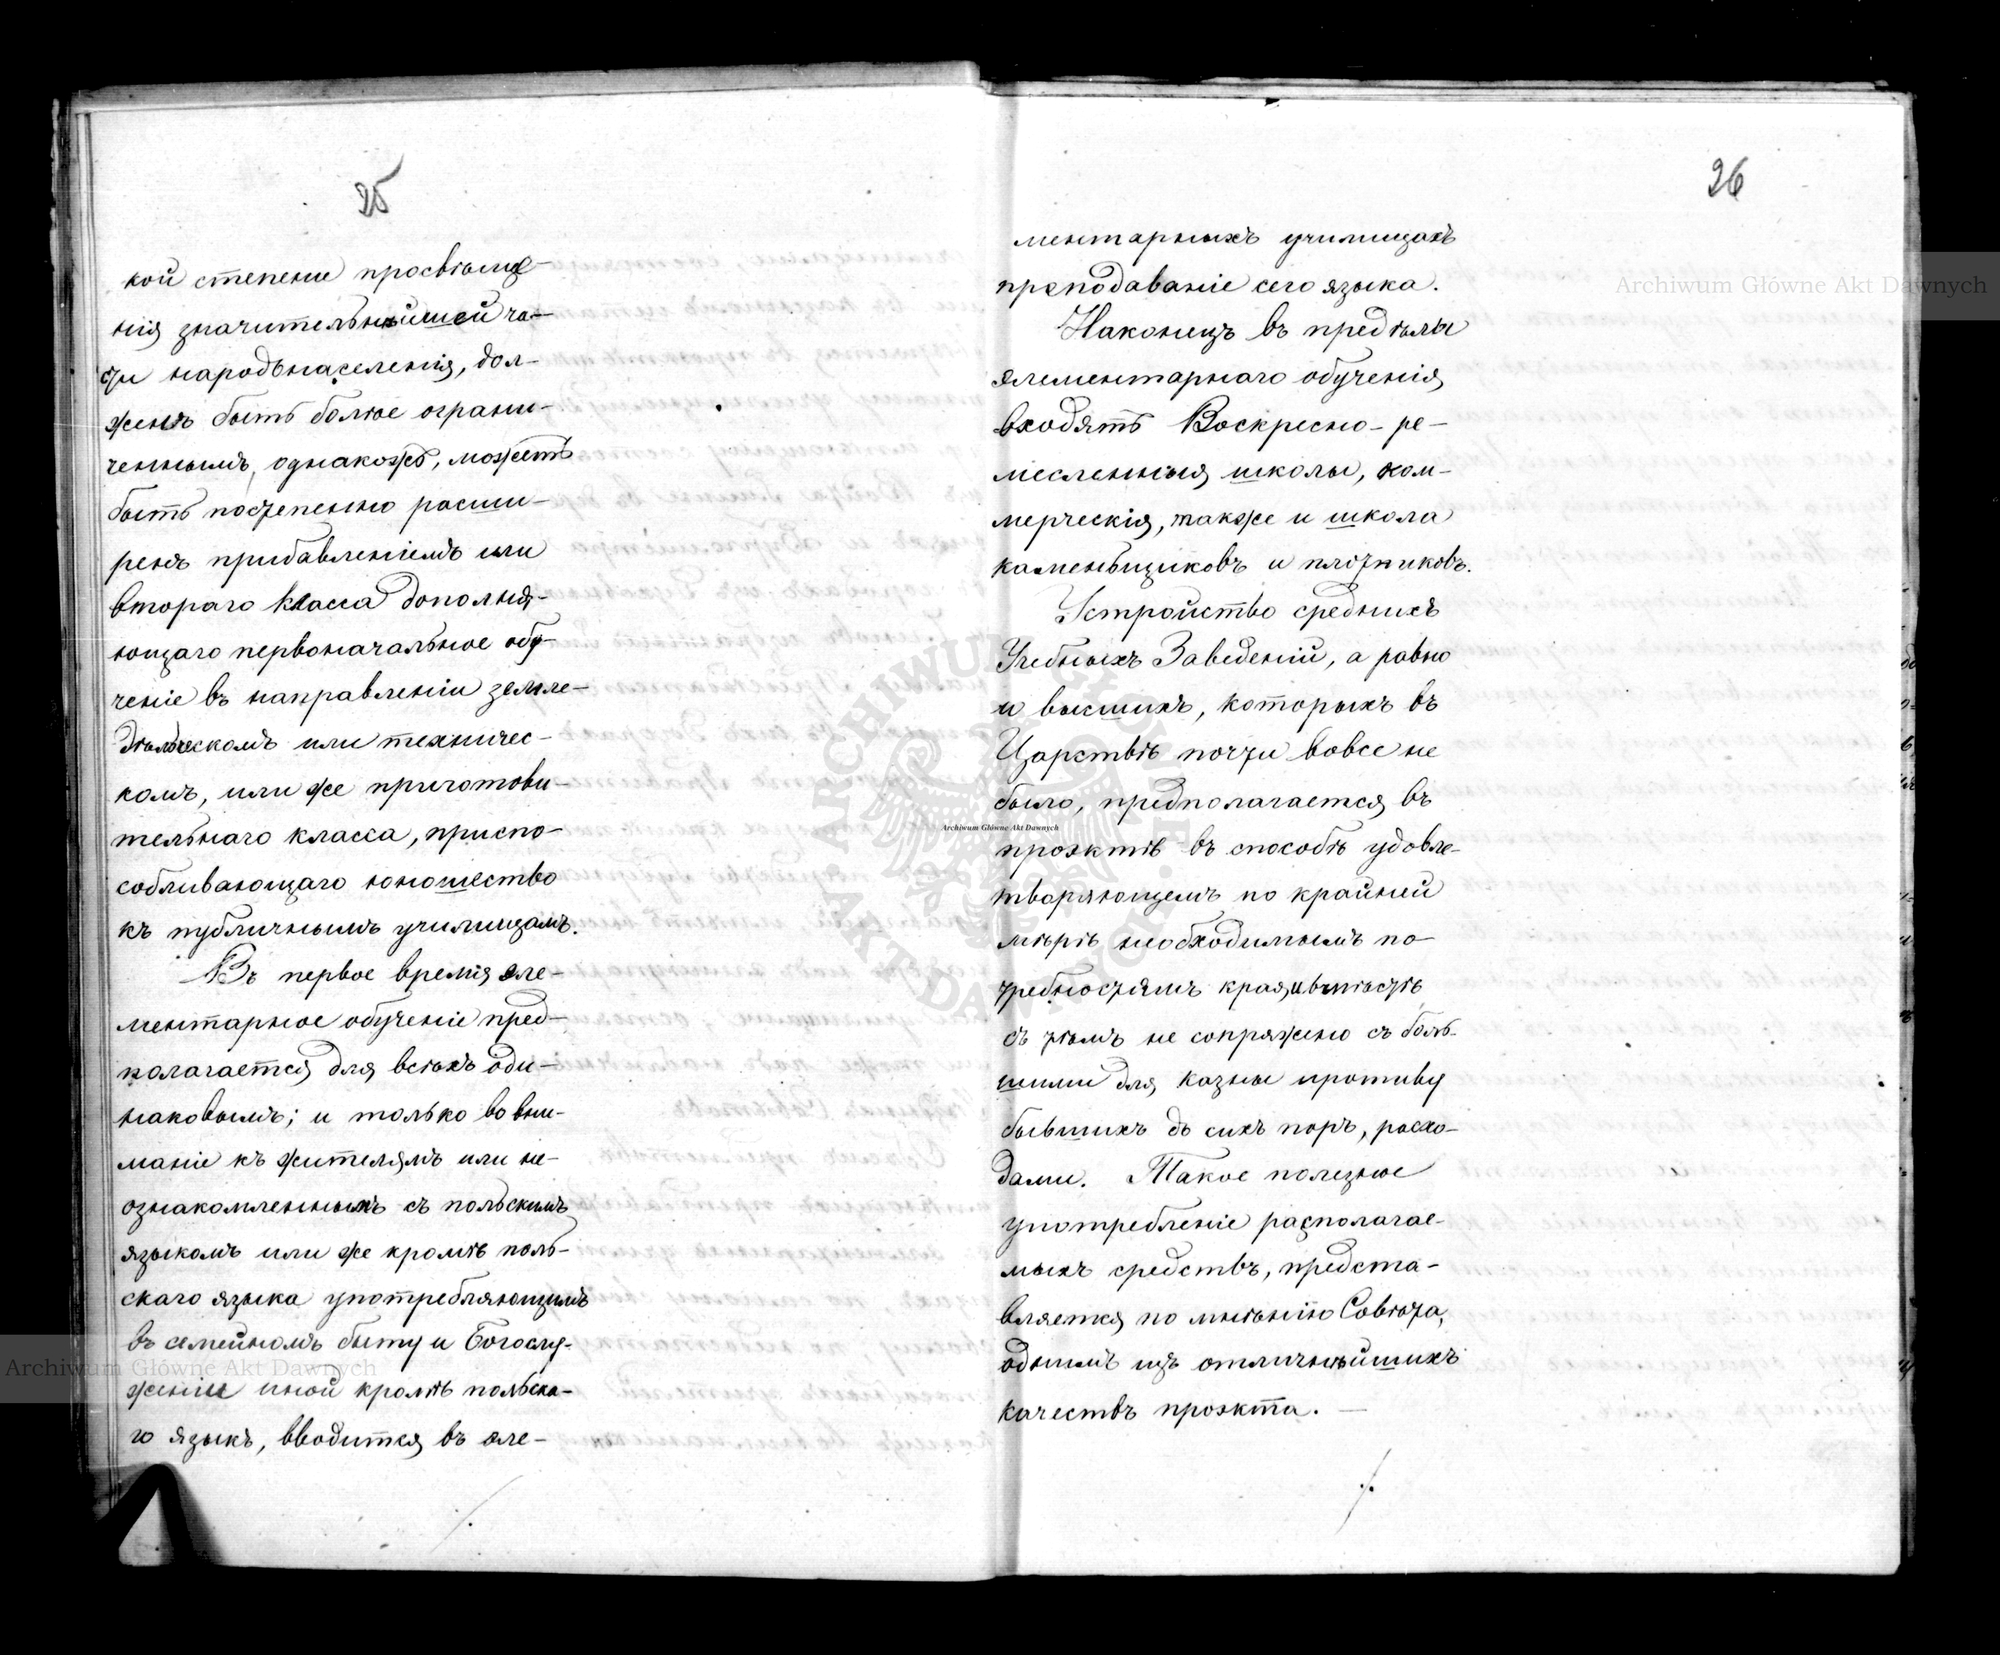 25
кой степени просвѣще-
нія значительнѣйшей ча-
сти народонаселенія, дол-
женъ быть болѣе ограни-
ченнымъ, однакожъ, можетъ
быть постепенно расши-
ренъ прибавленіемъ или
втораго класса дополня-
ющаго первоначальное обу-
ченіе въ направленіи земле-
дѣльческомъ или техничес-
комъ, или же приготови-
тельнаго класса, приспо-
собливающаго юношество
къ публичнымъ училищамъ.
Въ первое время эле-
ментарное обученіе пред-
полагается для всѣхъ оди-
наковымъ; и только во вни-
маніе къ жителямъ или не-
ознакомленныхъ съ польскимъ
языкомъ или же кромѣ поль-
скаго языка употребляющимъ
въ семейномъ быту и Богослу-
женіи иной кромѣ польска-
го языкъ, вводится въ эле-
./.
26
ментарныхъ училищахъ
преподаваніе сего языка.
Наконецъ въ предѣлы
элементарнаго обученія
входятъ Воскресно-ре-
месленныя школы, ком-
мерческія, также и школа
каменьщиковъ и плотниковъ.
Устройство среднихъ
Учебныхъ Заведеній, а равно
и высшихъ, которыхъ въ
Царствѣ почти вовсе не
было, предполагается въ
проэктѣ въ способѣ удовле-
творяющемъ по крайней
мѣрѣ необходимымъ по-
требностямъ края, и вмѣстѣ
съ тѣмъ не сопряжено съ боль-
шими для казны противу
бывшихъ до сихъ поръ, расхо-
дами. Такое полезное
употребленіе располагае-
мыхъ средствъ, предста-
вляется по мнѣнію Совѣта,
однимъ изъ отличнѣйшихъ
качествъ проэкта. —
./.
Archiwum Główne Akt Dawnych
Archiwum Główne Akt Dawnych
Archiwum Główne Akt Dawnych